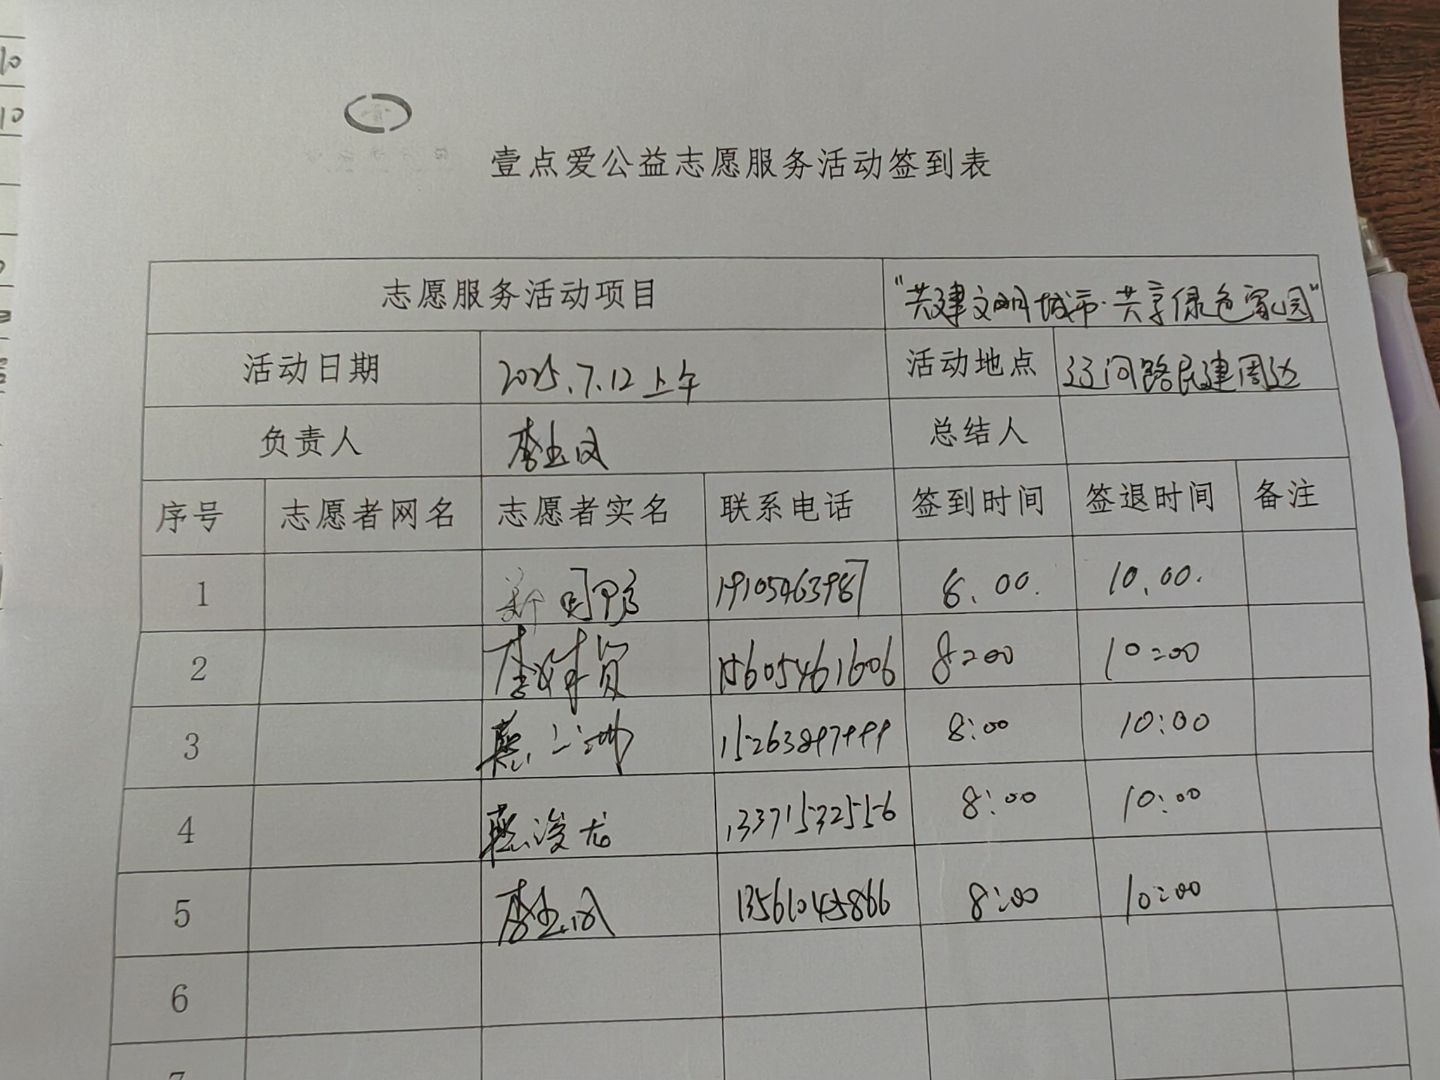 壹点爱公益志愿服务活动签到表
志愿服务活动项目 "共建文明城市·共享绿色家园"
活动日期 2025.7.12上午 活动地点 辽河路民建周边
负责人 李玉凤 总结人
序号 志愿者网名 志愿者实名 联系电话 签到时间 签退时间 备注
1 19105463987 8.00. 10.00.
2 15605461606 8:00 10:00
3 8:00 10:00
4 燕浚龙 13371532556 8:00 10:00
5 李玉凤 13561045866 8:00 10:00
6
7